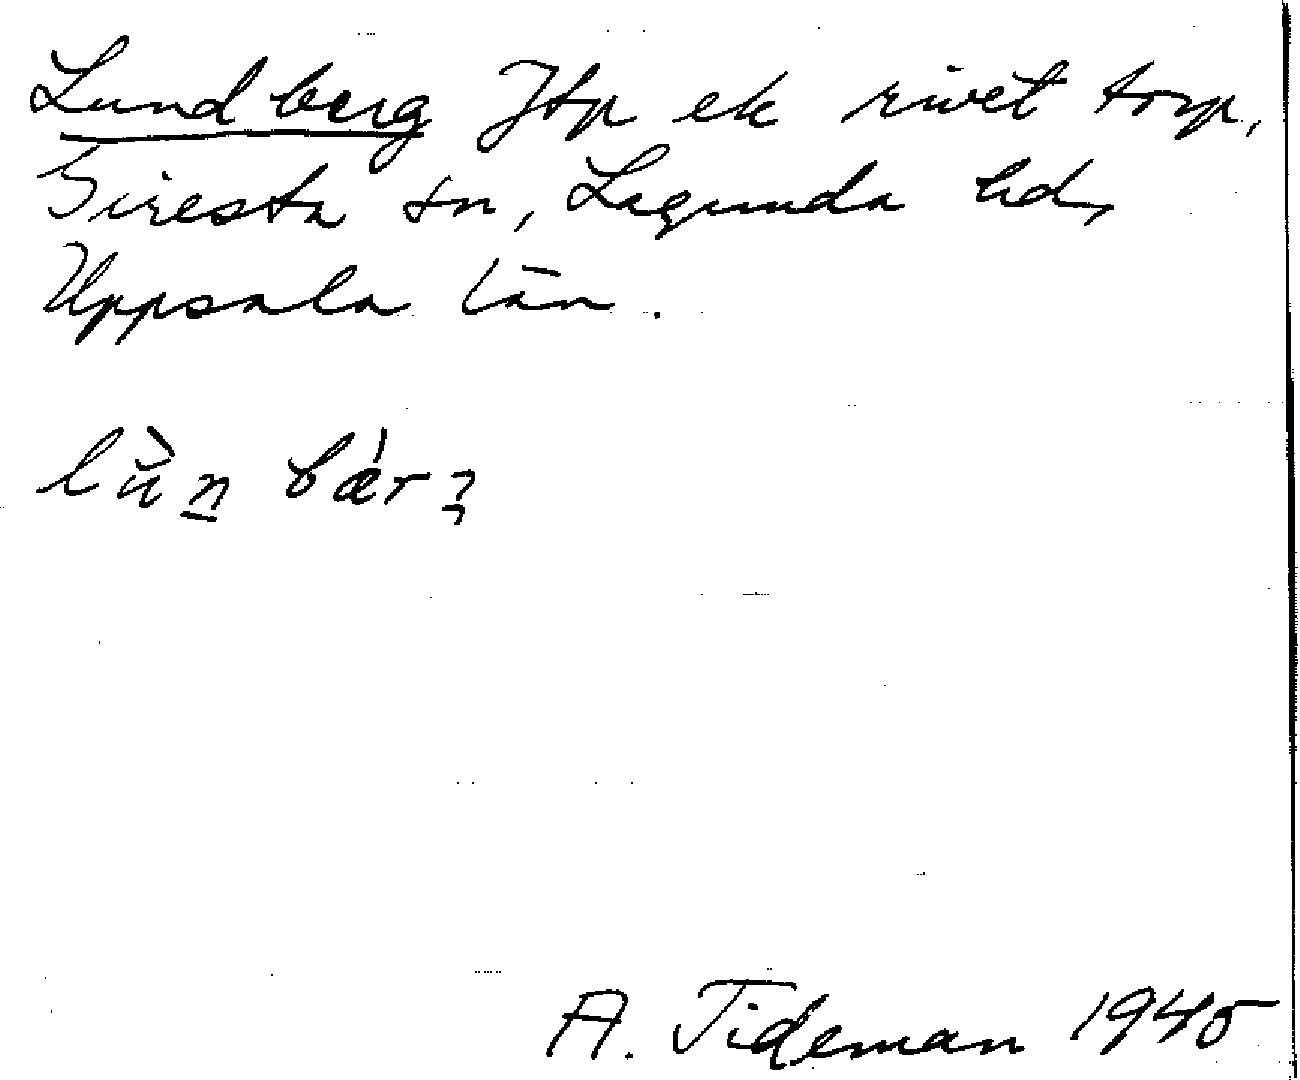 Lundberg Jtp ek rivet torp,
Giresta sn, Lagunda hd,
Uppsala län.
lu̇̀n bǽr
A. Tideman 1945